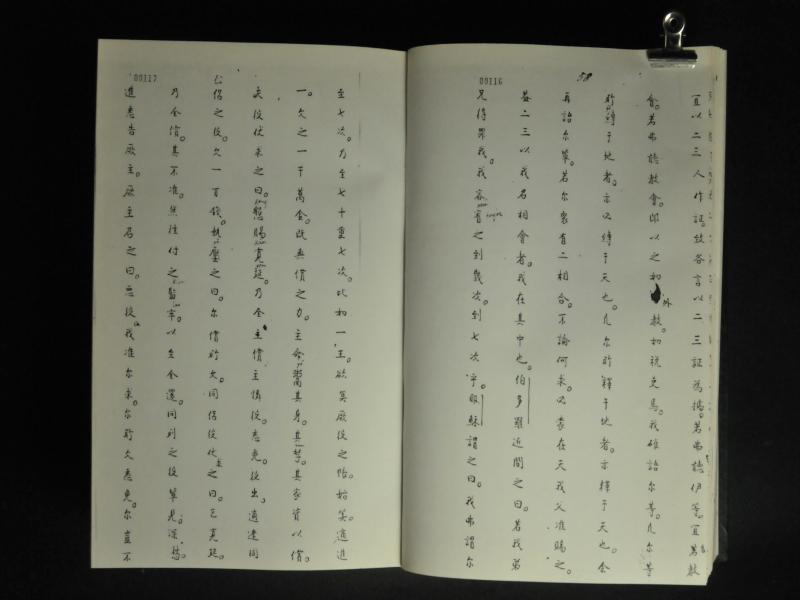 00116
58
宜以二三人作証。致各言以二三証為據。若弗聽伊等。宜萬教
會。若弗聽教會。即以之初外教。初税吏焉。我確語尔等。凡尔等
所縛于地者。亦必縛于天也。凡尔所釋于地者。亦釋于天也。余
再語尔輩。若尔衆有二相合。不論何求。必蒙在天我父准賜之。
葢二三以我名相會者。我在其中也。伯多羅近問之曰。若我弟
兄得罪我。我容宥之到幾次。到七次乎。耶穌謂之曰。我弗謂尔
00117
至七次。乃至七十更七次。比初一王。欲算厥役之賬。始算。適進
一。欠之一千萬金。既無償之力。主命鬻其身。其孥。其家資以償。
夫役伏求之曰。懇賜寛延。乃全主償主憐役。悉免。役出。適逢同
侣之役。欠一百錢。執壓之曰。尔償所欠。同侣役伏之曰。乞寛延。
乃全償。其不准。焦往付之監牢。以至全還。同列之役輩見。深愁。
進悉告厥主。厥主召之曰。惡役。我准尔求。尔所欠悉免。尔豈不